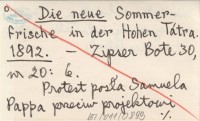 Die neue Sommer-
frische in der Hohen Tátra.
1892. – Zipser Bote 30,
nr 20: 6.
Protest posła Samuela
Pappa przeciw projektowi
·/.